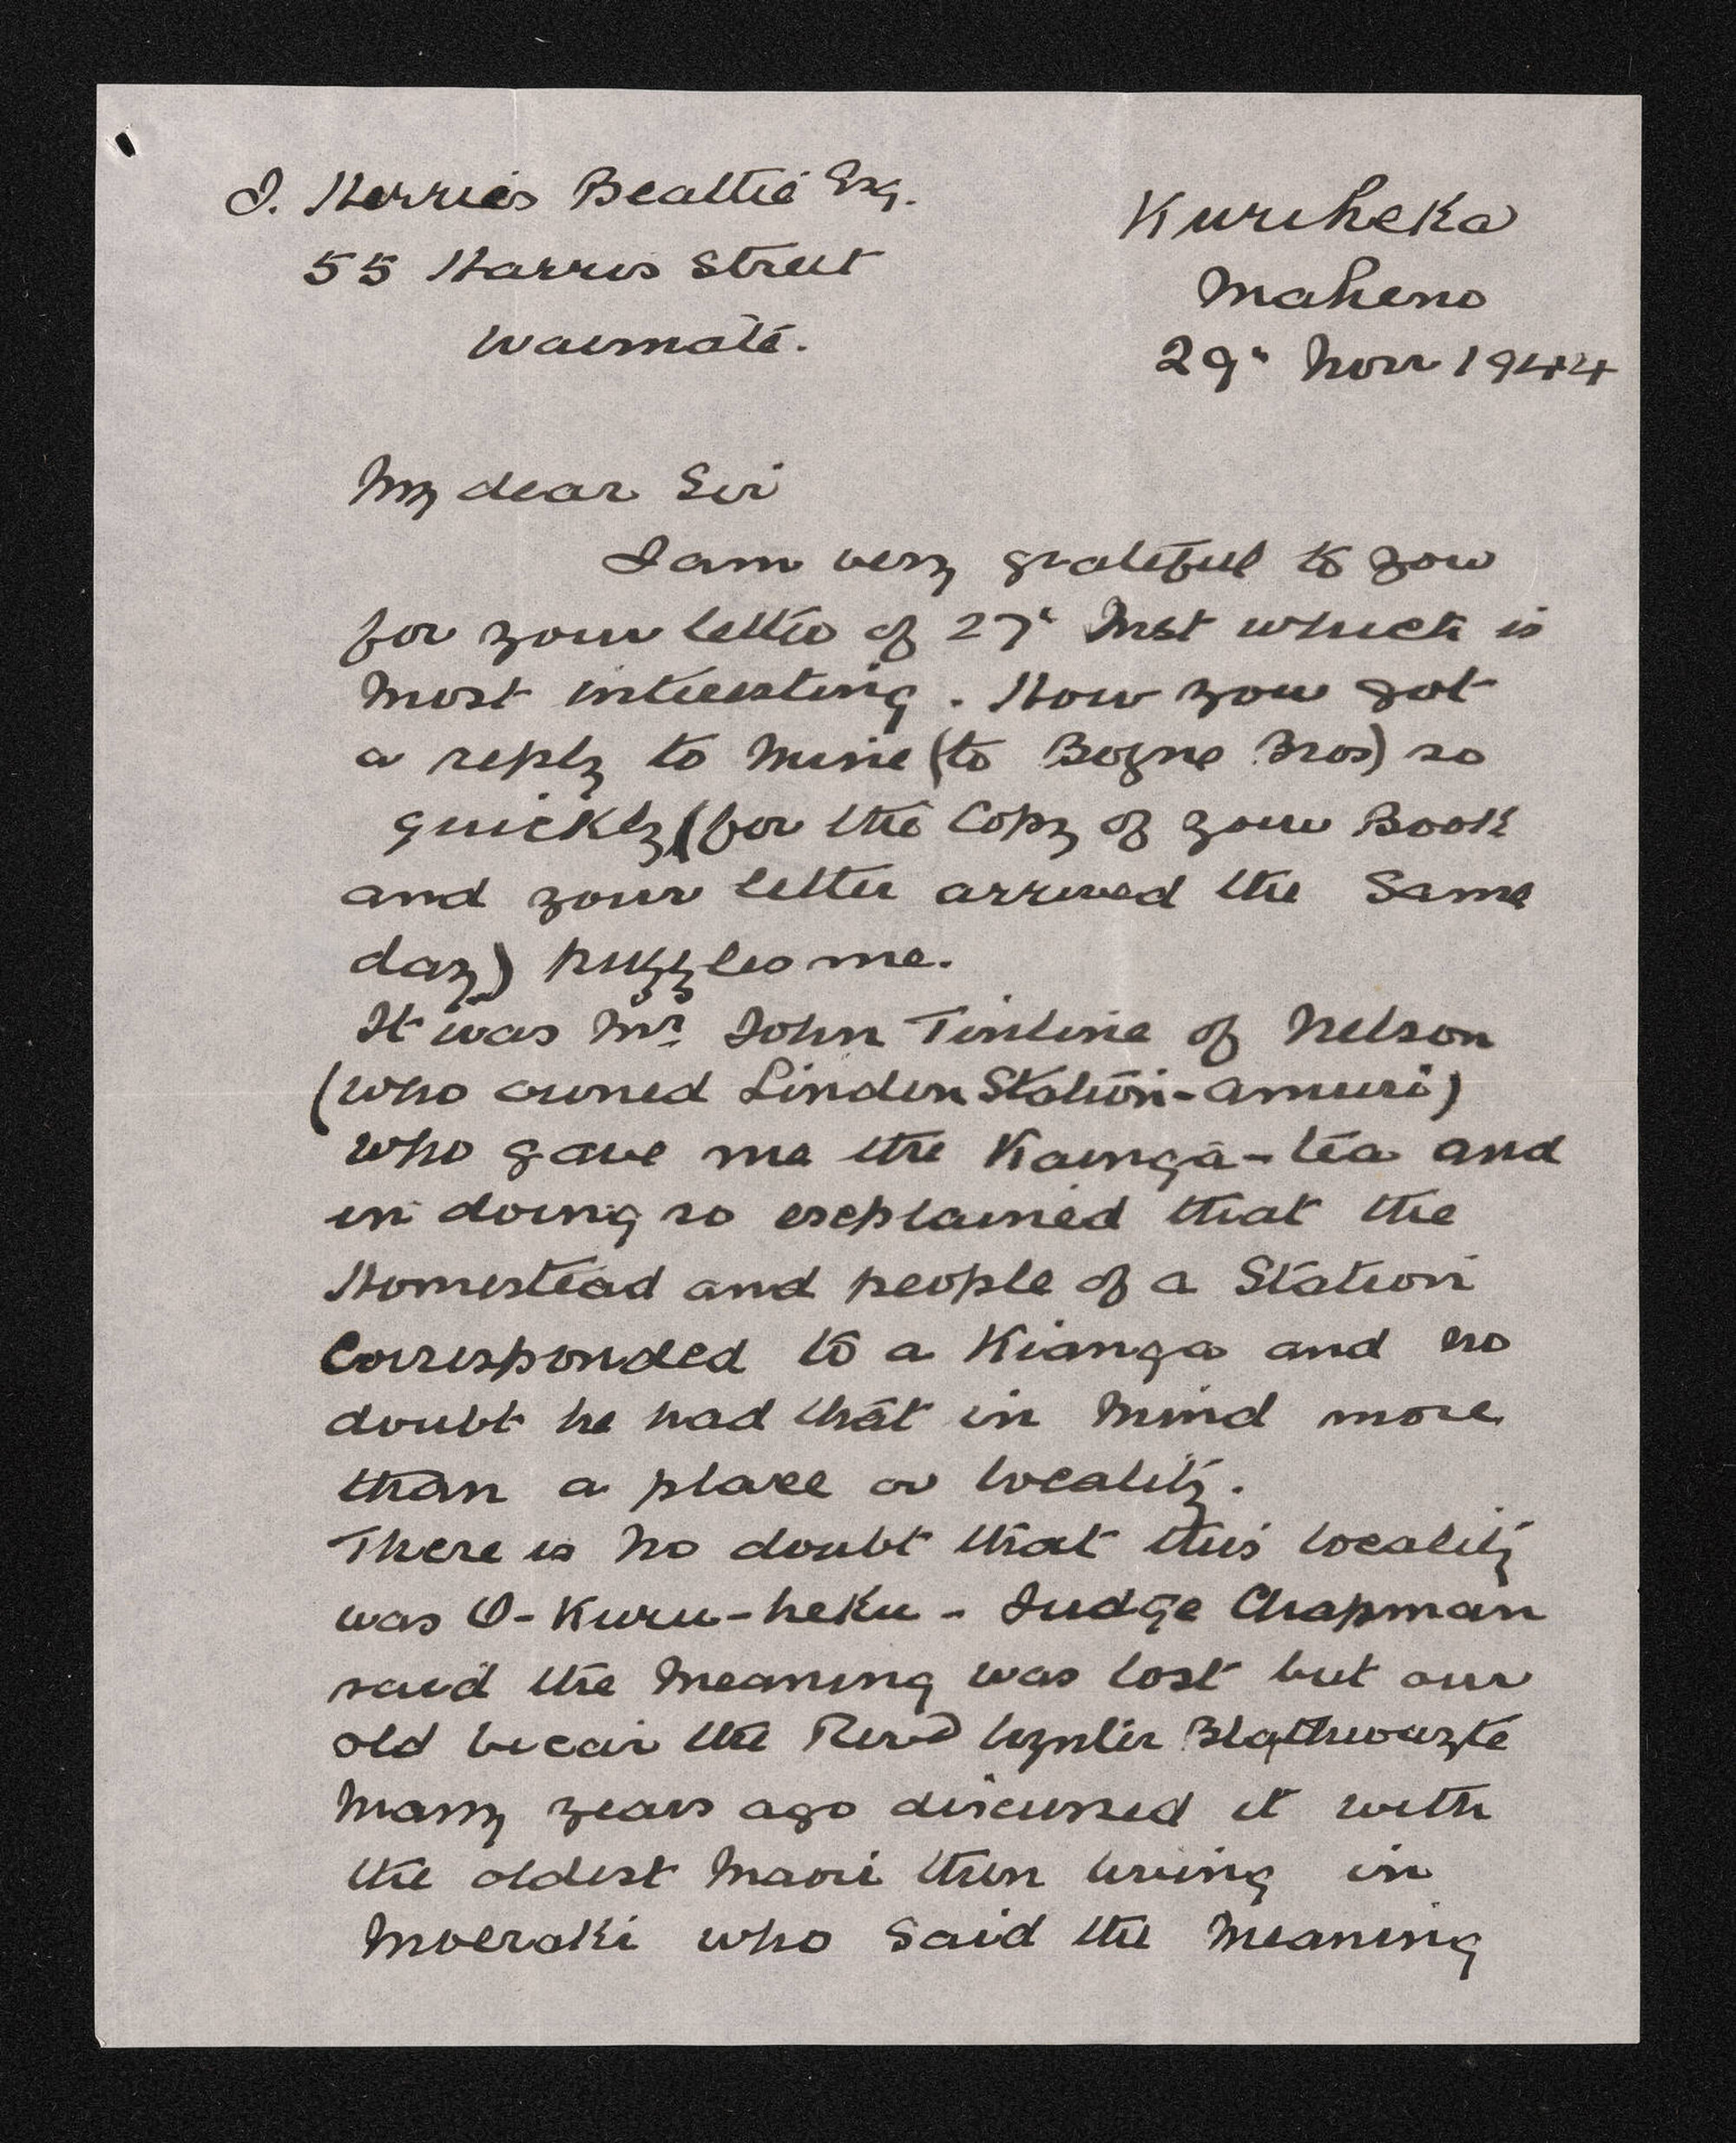 J. Herries Beattie Esq.
55 Harris Street
Waimate.
Kuriheka
Maheno
29" Novr 1944
My dear Sir
I am very grateful to you
for your letter of 27" Inst which is
most interesting. How you got
a reply to mine (to Boyne Bros) so
quickly (for the Copy of your Book
and your letter arrived the same
day) puzzles me.
It was Mr John Tinline of Nelson
(who owned Lindon Station - Amuri)
who gave me the Kainga-tea and
in doing so explained that the
Homestead and people of a Station
Corresponded to a Kianga and no
doubt he had that in mind more
than a place or locality.
There is no doubt that this locality
was O-Kuru-heku - Judge Chapman
said the meaning was lost but our
old vicar the Revd Wynter Blathwayte
many years ago discussed it with
the oldest Maori then living in
Moeraki who said the meaning